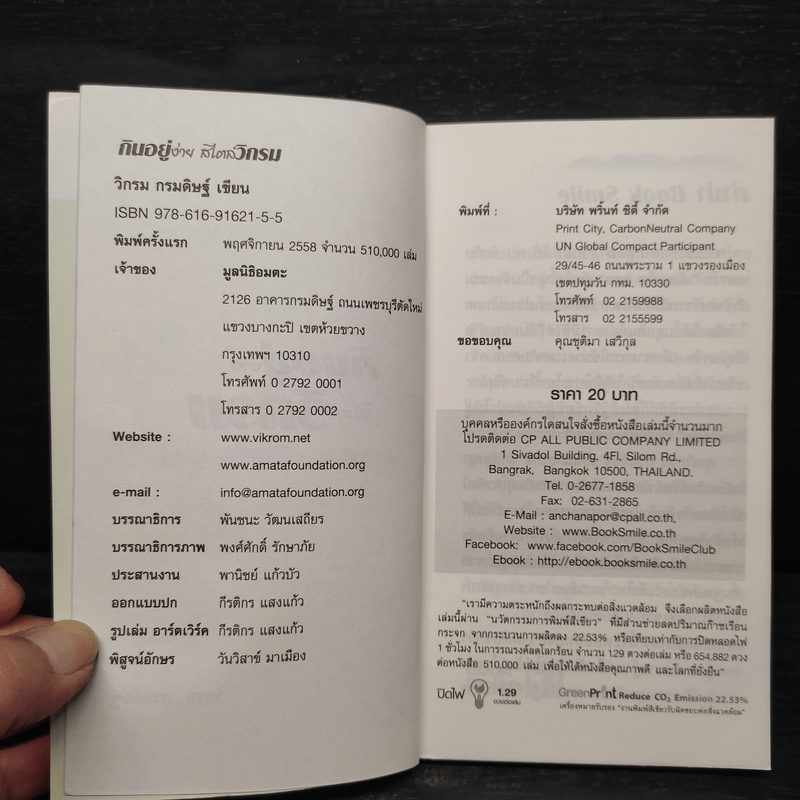 กินอยู่ง่าย สไตล์วิกรม
วิกรม กรมดิษฐ์ เขียน
ISBN 978-616-91621-5-5
พิมพ์ครั้งแรก พฤศจิกายน 2558 จำนวน 510,000 เล่ม
เจ้าของ มูลนิธิอมตะ
2126 อาคารกรมดิษฐ์ ถนนเพชรบุรีตัดใหม่
แขวงบางกะปิ เขตห้วยขวาง
กรุงเทพฯ 10310
โทรศัพท์ 0 2792 0001
โทรสาร 0 2792 0002
Website : www.vikrom.net
www.amatafoundation.org
e-mail : info@amatafoundation.org
บรรณาธิการ พันชนะ วัฒนเสถียร
บรรณาธิการภาพ พงศ์ศักดิ์ รักษาภัย
ประสานงาน พานิชย์ แก้วบัว
ออกแบบปก กีรติกร แสงแก้ว
รูปเล่ม อาร์ตเวิร์ค กีรติกร แสงแก้ว
พิสูจน์อักษร วันวิสาข์ มาเมือง
พิมพ์ที่ : บริษัท พริ้นท์ ซิตี้ จำกัด
Print City, CarbonNeutral Company
UN Global Compact Participant
29/45-46 ถนนพระราม 1 แขวงรองเมือง
เขตปทุมวัน กทม. 10330
โทรศัพท์ 02 2159988
โทรสาร 02 2155599
ขอขอบคุณ คุณชุติมา เสวิกุล
ราคา 20 บาท
บุคคลหรือองค์กรใดสนใจสั่งซื้อหนังสือเล่มนี้จำนวนมาก
โปรดติดต่อ CP ALL PUBLIC COMPANY LIMITED
1 Sivadol Building, 4Fl, Silom Rd.,
Bangrak, Bangkok 10500, THAILAND.
Tel. 0-2677-1858
Fax: 02-631-2865
E-Mail : anchanapor@cpall.co.th,
Website : www.BookSmile.co.th
Facebook: www.facebook.com/BookSmileClub
Ebook : http://ebook.booksmile.co.th
"เรามีความตระหนักถึงผลกระทบต่อสิ่งแวดล้อม จึงเลือกผลิตหนังสือ
เล่มนี้ผ่าน "นวัตกรรมการพิมพ์สีเขียว" ที่มีส่วนช่วยลดปริมาณก๊าซเรือน
กระจก จากกระบวนการผลิตลง 22.53% หรือเทียบเท่ากับการปิดหลอดไฟ
1 ชั่วโมง ในการรณรงค์ลดโลกร้อน จำนวน 1.29 ดวงต่อเล่ม หรือ 654,882 ดวง
ต่อหนังสือ 510,000 เล่ม เพื่อให้ได้หนังสือคุณภาพดี และโลกที่ยั่งยืน"
ปิดไฟ 1.29
ดวงต่อเล่ม
GreenPrint Reduce CO₂ Emission 22.53%
เครื่องหมายรับรอง "งานพิมพ์สีเขียวรับผิดชอบต่อสิ่งแวดล้อม"